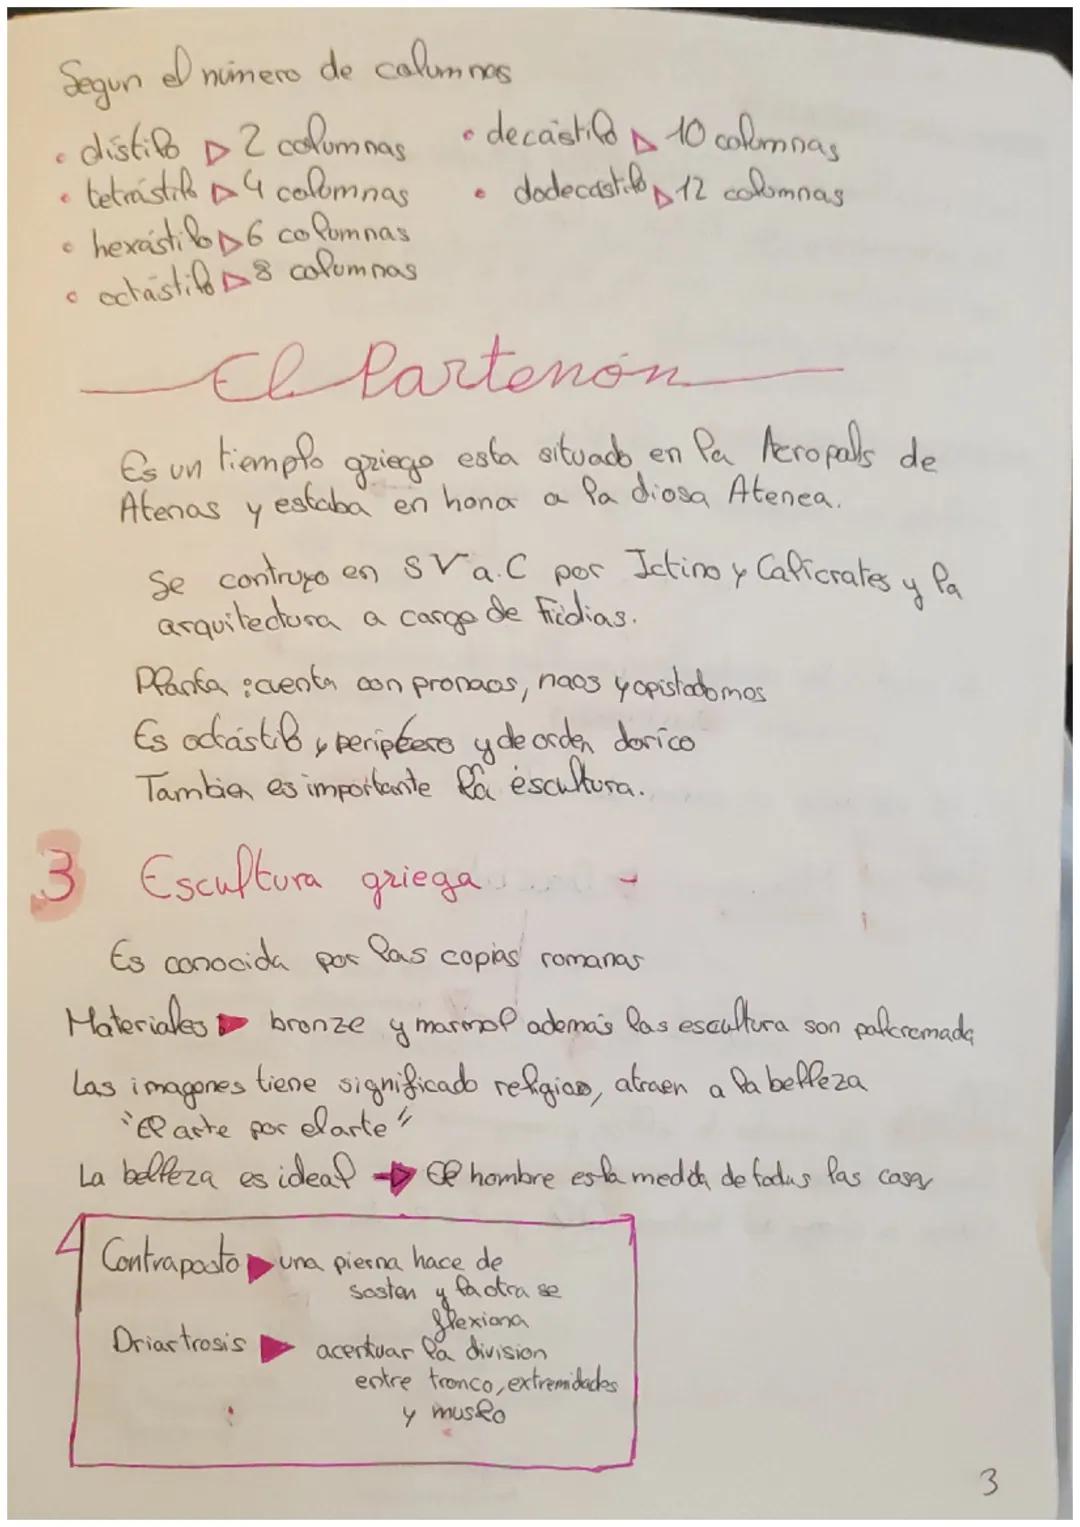 Segun el número de columnas
• dístilo ▷ 2 columnas
• tetrástilo ▷ 4 columnas
• hexástilo ▷ 6 columnas
• octástilo ▷ 8 columnas
• decástilo ▷ 10 columnas
• dodecástilo ▷ 12 columnas
El Partenón
Es un tiemplo griego esta situado en la Acropolis de
Atenas y estaba en honor a la diosa Atenea.
Se contruyo en S V a.C por Ictino y Calicrates y la
arquitectura a cargo de Fidias.
Planta : cuenta con pronaos, naos y opistodomos
Es octástilo, periptero y de orden dorico
Tambien es importante la escultura.
3 Escultura griega
Es conocida por las copias romanas
Materiales ▶ bronze y marmol además las escultura son policremada
Las imagenes tiene significado religioso, atraen a la belleza
"El arte por el arte"
La belleza es ideal → El hombre es la medida de todas las cosas
Contraposto ▶ una pierna hace de
sosten y la otra se
flexiona
Driartrosis ▶ acentuar la division
entre tronco, extremidades
y muslo
3